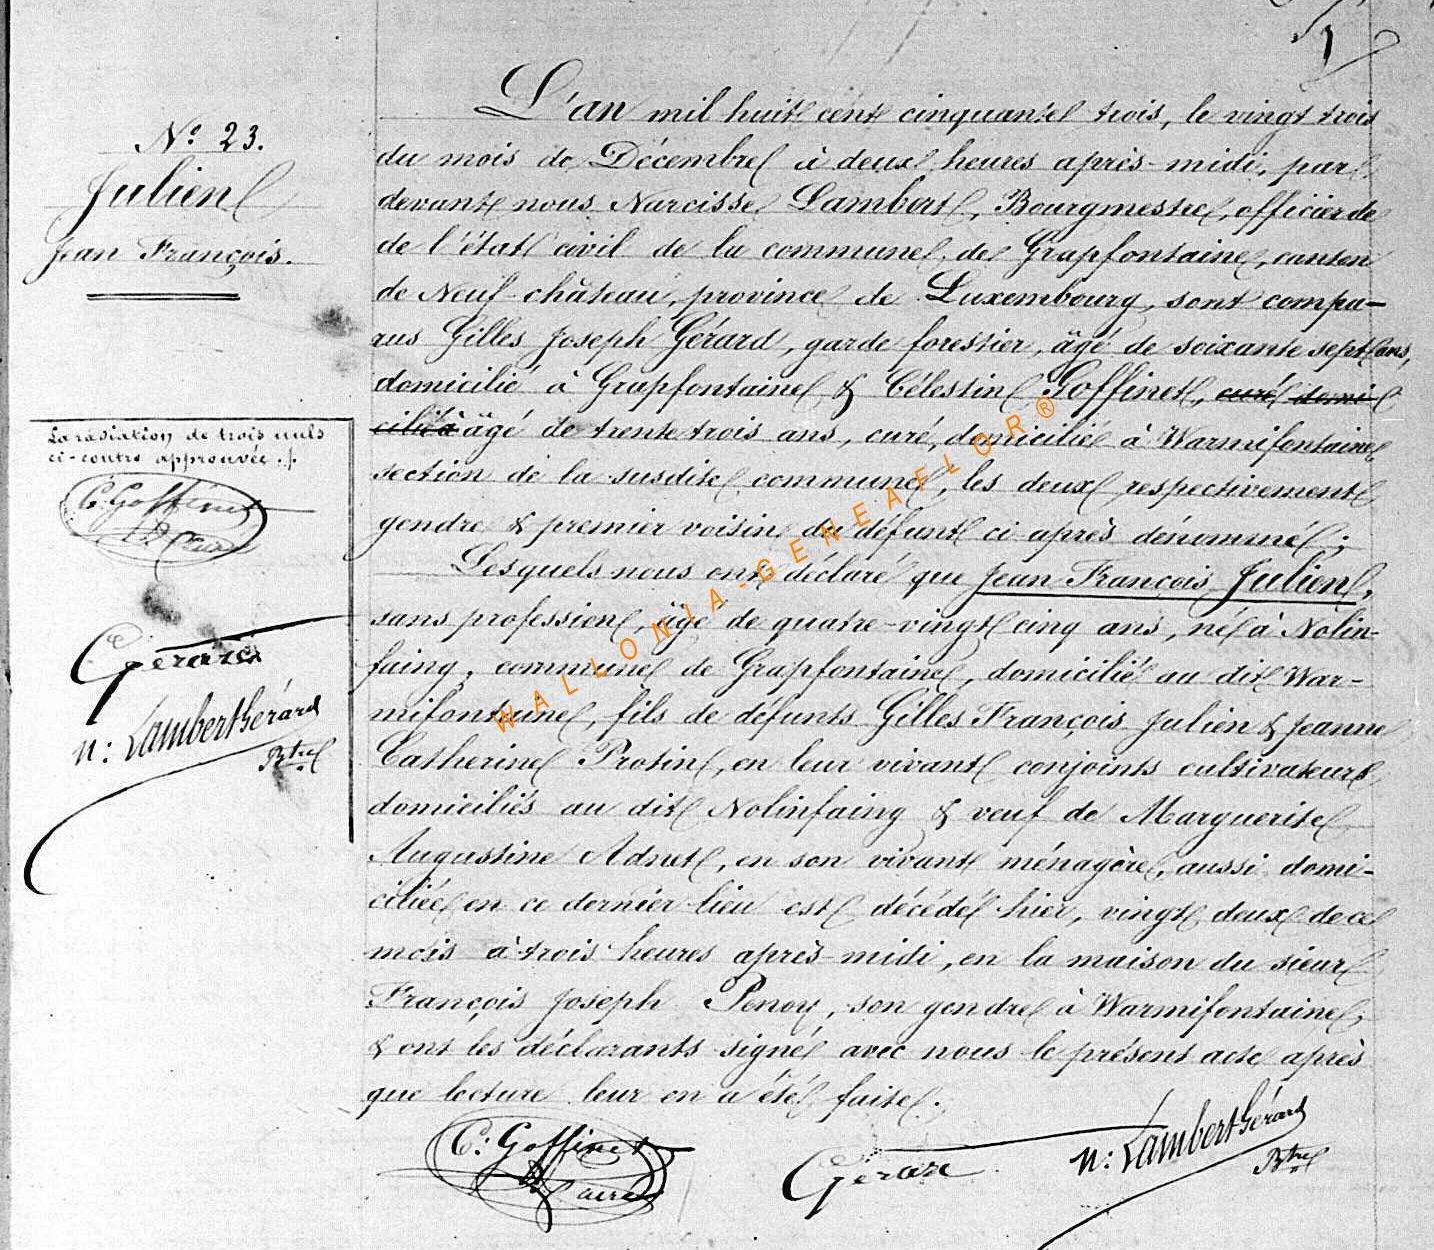 N.° 23.
Julien
Jean François.
La radiation de trois mots
ci-contre approuvée ./.
C. Goffinet
Curé
Gérard
N: Lambert Gérard
Btre
L'an mil huit cent cinquante trois, le vingt trois
du mois de Décembre à deux heures après-midi, par
devant nous Narcisse Lambert, Bourgmestre, officier de
de l'état civil de la commune de Grapfontaine, canton
de Neuf-château, province de Luxembourg, sont compa-
rus Gilles Joseph Gérard, garde forestier, âgé de soixante sept ans,
domicilié à Grapfontaine & Célestin Goffinet, curé domi
cilié à âgé de trente trois ans, curé, domicilié à Warmifontaine
section de la susdite commune, les deux respectivement
gendre & premier voisin du défunt ci après dénommé ;
Lesquels nous ont déclaré que Jean François Julien,
sans profession, âgé de quatre-vingt cinq ans, né à Nolin-
faing, commune de Grapfontaine, domicilié au dit War-
mifontaine, fils de défunts Gilles François Julien & Jeanne
Catherine Protin, en leur vivant conjoints cultivateurs
domiciliés au dit Nolinfaing & veuf de Marguerite
Augustine Adnet, en son vivant ménagère, aussi domi-
ciliée en ce dernier lieu est décédé hier, vingt deux de ce
mois à trois heures après-midi, en la maison du sieur
François Joseph Penoy, son gendre à Warmifontaine,
& ont les déclarants signé avec nous le présent acte après
que lecture leur en a été faite.
C: Goffinet
Curé
Gérard
N: Lambert Gérard
Btre
WALLONIA-GENEAFLOR®